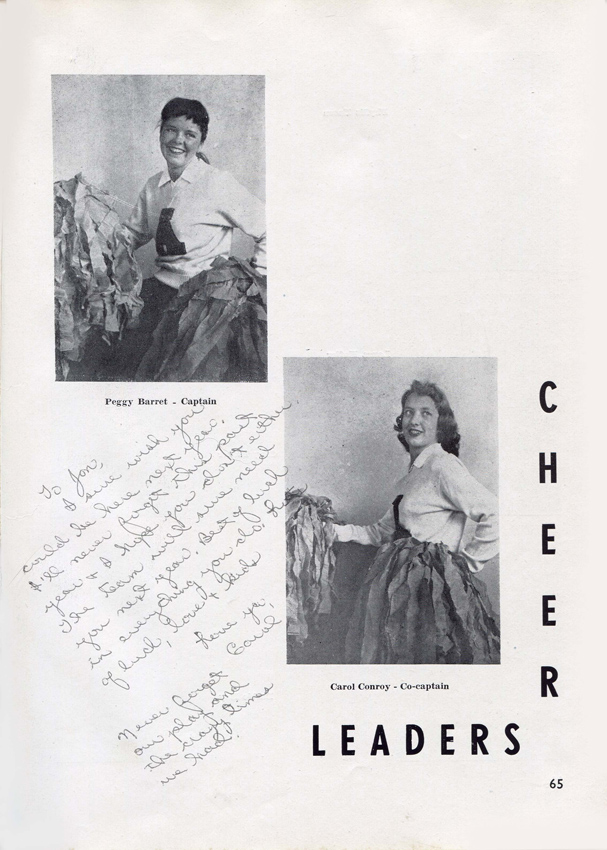 Peggy Barret - Captain
To Jan,
I sure wish you
could be here next year.
I'll never forget this past
year & I hope you don't either.
The team will sure need
you next year. Best of luck
in everything you do. Lots
of luck, love & kids
Love ya,
Carol
Never forget
our play and
the crazy times
we had!
Carol Conroy - Co-captain
CHEER
LEADERS
65